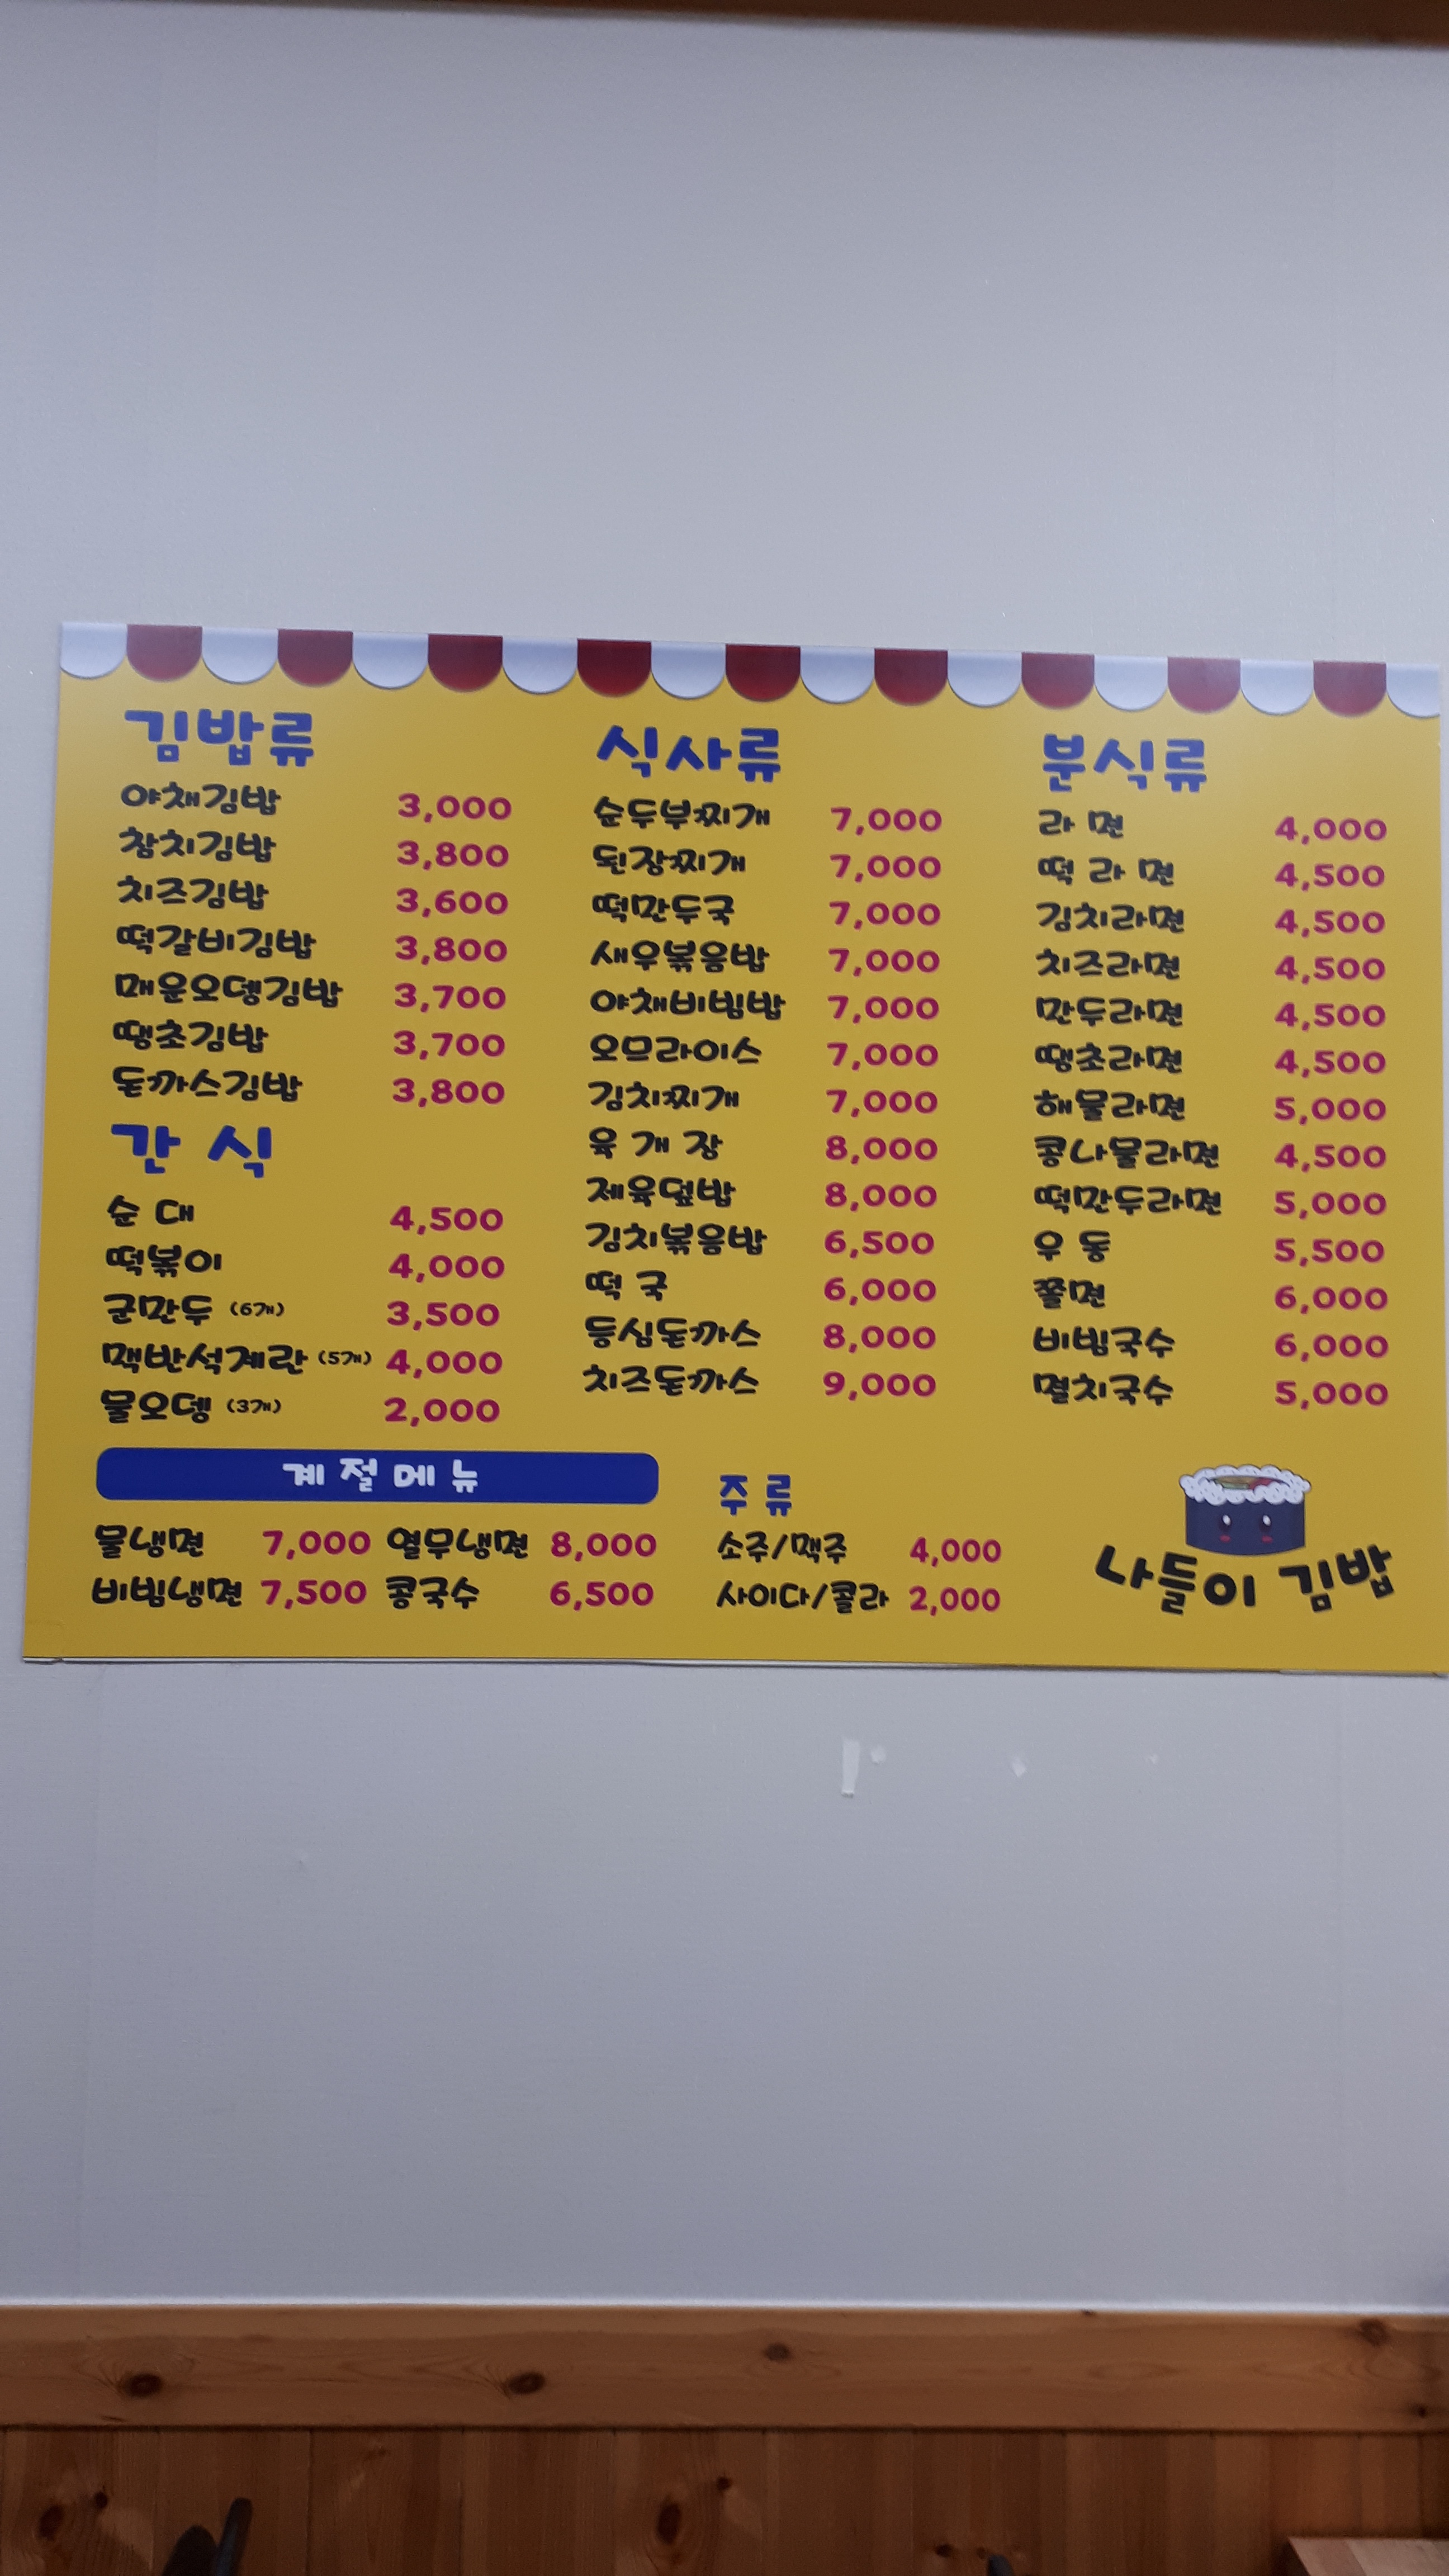 김밥류
야채김밥 3,000
참치김밥 3,800
치즈김밥 3,600
떡갈비김밥 3,800
매운오뎅김밥 3,700
땡초김밥 3,700
돈까스김밥 3,800
간 식
순 대 4,500
떡볶이 4,000
군만두 (6개) 3,500
맥반석계란 (5개) 4,000
물오뎅 (3개) 2,000
식사류
순두부찌개 7,000
된장찌개 7,000
떡만두국 7,000
새우볶음밥 7,000
야채비빔밥 7,000
오므라이스 7,000
김치찌개 7,000
육 개 장 8,000
제육덮밥 8,000
김치볶음밥 6,500
떡 국 6,000
등심돈까스 8,000
치즈돈까스 9,000
분식류
라 면 4,000
떡 라 면 4,500
김치라면 4,500
치즈라면 4,500
만두라면 4,500
땡초라면 4,500
해물라면 5,000
콩나물라면 4,500
떡만두라면 5,000
우 동 5,500
쫄면 6,000
비빔국수 6,000
멸치국수 5,000
계 절 메 뉴
물냉면 7,000 열무냉면 8,000
비빔냉면 7,500 콩국수 6,500
주 류
소주/맥주 4,000
사이다/콜라 2,000
나들이 김밥